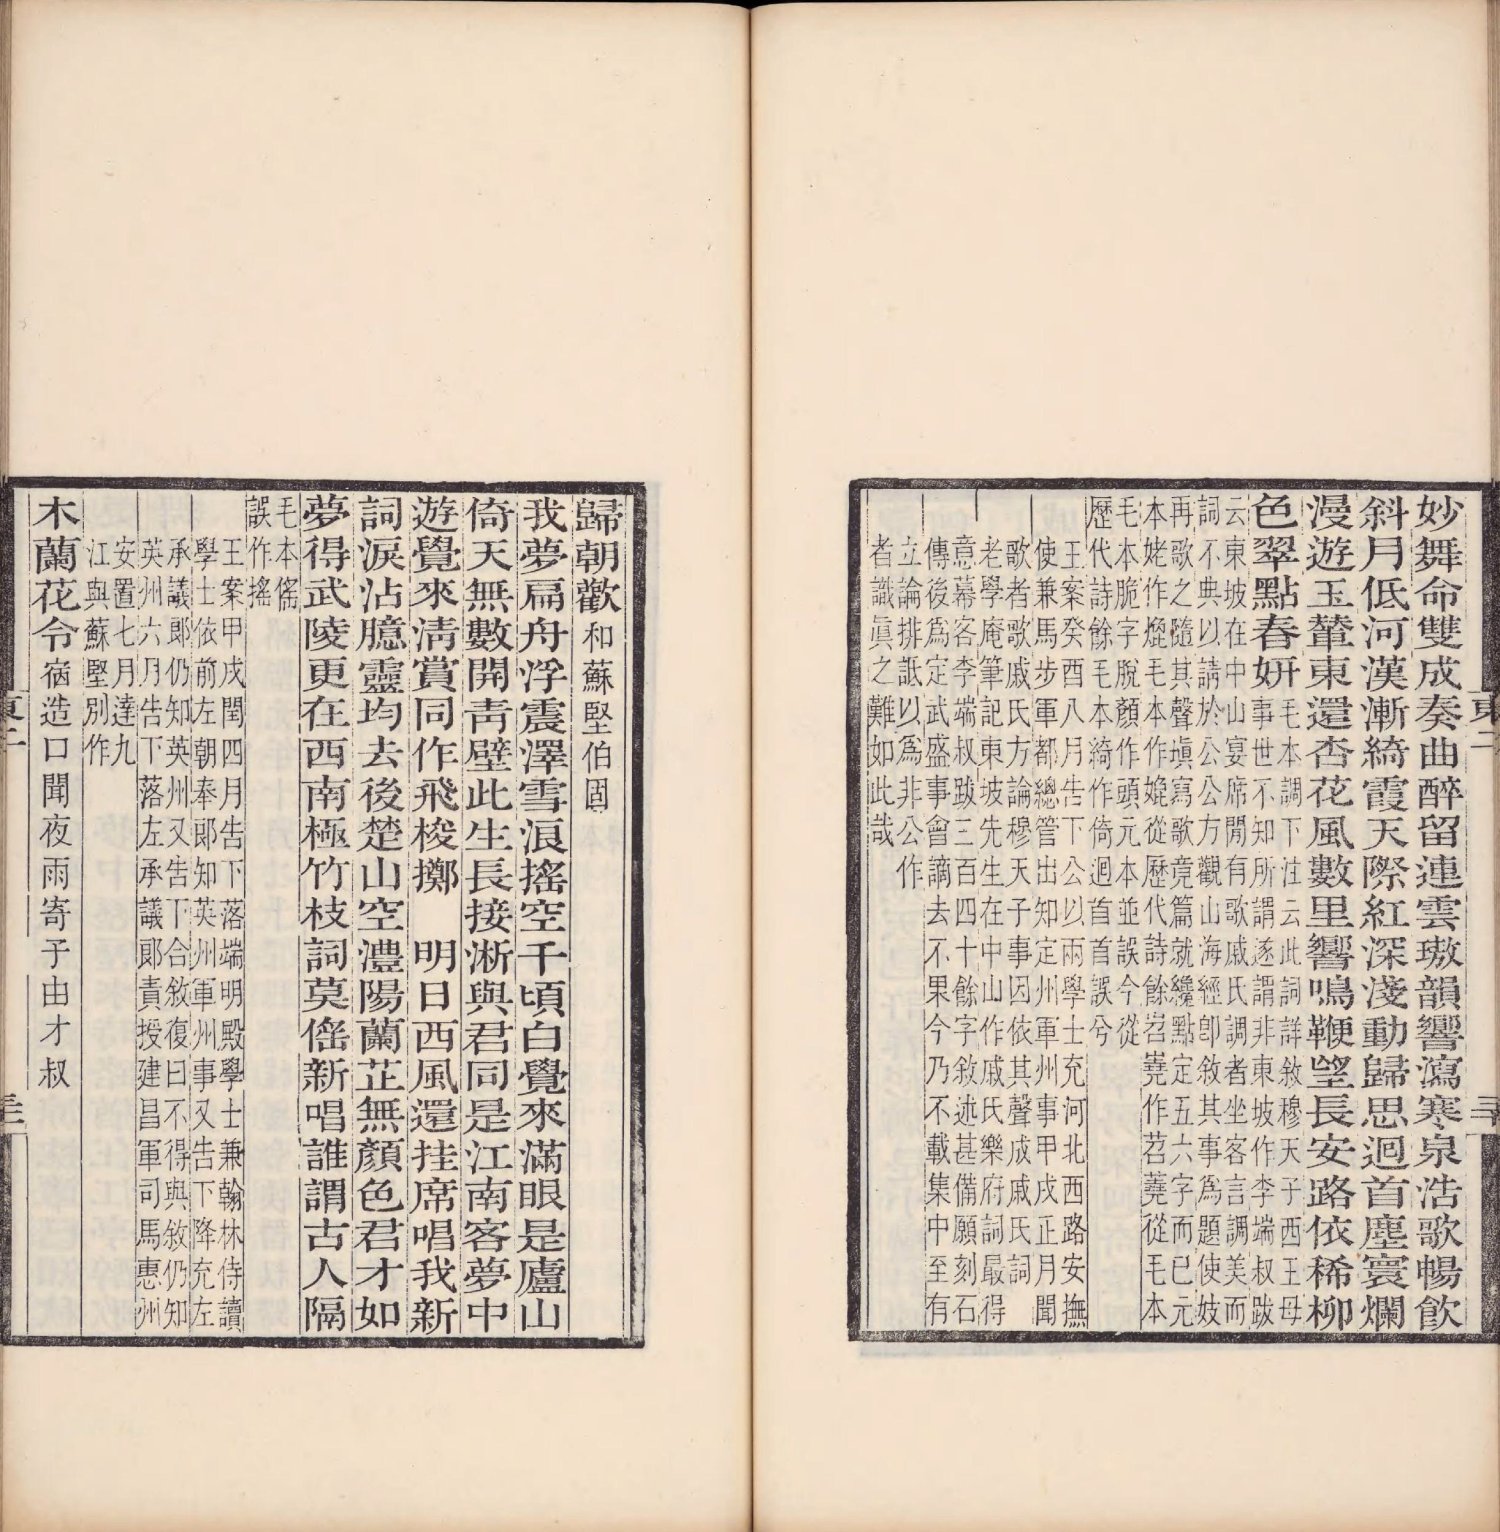 妙舞命雙成奏曲醉留連雲璈韻響瀉寒泉浩歌暢飲
斜月低河漢漸綺霞天際紅深淺動歸思迴首塵寰爛
漫遊玉輦東還杏花風數里響鳴鞭望長安路依稀柳
色翠點春妍
毛本調下注云此詞詳敘穆天子西王母
事世不知所謂遂謂非東坡作李端叔跋
云東坡在中山宴席閒有歌戚氏調者坐客言調美而
詞不典以請於公公方觀山海經卽敘其事爲題使妓
再歌之隨其聲塡寫歌竟篇就纔點定五六字而已元
本姥作毛本作從歷代詩餘岧嶤作苕蕘從毛本
毛本脆字脫顏作頭元本並誤今從
歷代詩餘毛本綺作倚迴首首誤兮
王案癸酉八月告下公以兩學士充河北西路安撫
使兼馬步軍都總管出知定州軍州事甲戌正月聞
歌者歌戚氏方論穆天子事因依其聲成戚氏詞
老學庵筆記東坡先生在中山作戚氏樂府詞最得
意幕客李端叔跋三百四十餘字敘述甚備願刻石
傳後爲定武盛事會謫去不果今乃不載集中至有
立論排詆以爲非公作
者識眞之難如此哉
歸朝歡和蘇堅伯固
我夢扁舟浮震澤雪浪搖空千頃白覺來滿眼是廬山
倚天無數開靑壁此生長接淅與君同是江南客夢中
遊覺來淸賞同作飛梭擲　明日西風還挂席唱我新
詞淚沾臆靈均去後楚山空澧陽蘭芷無顏色君才如
夢得武陵更在西南極竹枝詞莫傜新唱誰謂古人隔
毛本傜
誤作搖
王案甲戌閏四月告下落端明殿學士兼翰林侍讀
學士依前左朝奉郞知英州軍州事又告下降充左
承議郞仍知英州又告下合敘復曰不得與敘仍知
英州六月告下落左承議郞責授建昌軍司馬惠州
安置七月達九
江與蘇堅別作
木蘭花令宿造口聞夜雨寄子由才叔